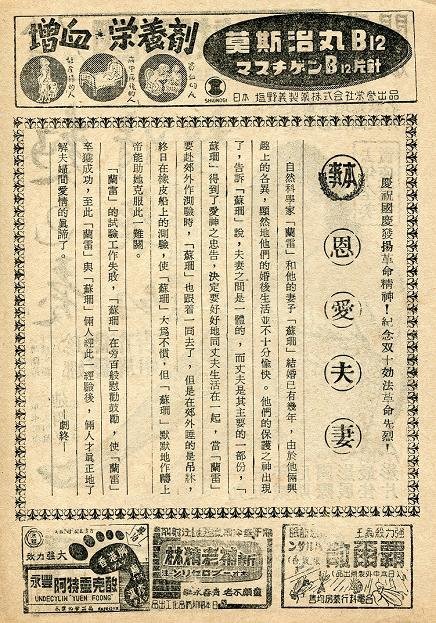 增血·榮養劑
莫斯治丸B12
マスチゲンB12片針
SHIONOGI
日本 塩野義製藥株式会社榮譽出品
慶祝國慶發揚革命精神！紀念双十効法革命先烈！
本事
恩愛夫妻
自然科學家「蘭雷」和他的妻子「蘇珊」結婚已有幾年，由於他倆興
趣上的各異，顯然地他們的婚後生活並不十分愉快。他們的保護之神出現
了，告訴「蘇珊」說，夫妻之間是一體的，而丈夫是其主要的一部份，「
蘇珊」得到了愛神之忠告，決定要好好地同丈夫生活在一起，當「蘭雷」
要赴郊外作測驗時，「蘇珊」也跟着一同去了，但是在郊外睡的是吊牀，
終日在橡皮船上的測驗，使「蘇珊」大為不慣，但「蘇珊」默默地作禱上
帝能助她克服此一難關。
「蘭雷」的試驗工作失敗，「蘇珊」在旁百般慰勸鼓勵，使「蘭雷」
卒獲成功，至此「蘭雷」與「蘇珊」倆人經此一經驗後，倆人才眞正地了
解夫婦間愛情的眞諦了。
——劇終——
大強力效
香港腳
永豐 阿特靈克酸
UNDECYLIN "YUEN FOONG"
新補老精林
童顏不老 青春永
強力殺蟲王